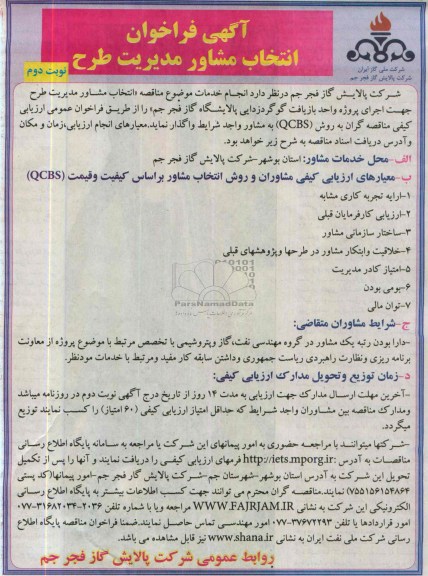 آگهی فراخوان
انتخاب مشاور مدیریت طرح
نوبت دوم
شرکت ملی گاز ایران
شرکت پالایش گاز فجر جم
شرکت پالایش گاز فجر جم درنظر دارد انجام خدمات موضوع مناقصه «انتخاب مشاور مدیریت طرح
جهت اجرای پروژه واحد بازیافت گوگردزدایی پالایشگاه گاز فجر جم» را از طریق فراخوان عمومی ارزیابی
کیفی مناقصه گران به روش (QCBS) به مشاور واجد شرایط واگذار نماید.معیارهای انجام ارزیابی،زمان و مکان
وآدرس دریافت اسناد مناقصه به شرح زیر خواهد بود.
الف-محل خدمات مشاور: استان بوشهر-شرکت پالایش گاز فجر جم
ب-معیارهای ارزیابی کیفی مشاوران و روش انتخاب مشاور براساس کیفیت وقیمت (QCBS)
۱-ارایه تجربه کاری مشابه
۲-ارزیابی کارفرمایان قبلی
۳-ساختار سازمانی مشاور
۴-خلاقیت وابتکار مشاور در طرحها وپژوهشهای قبلی
۵-امتیاز کادر مدیریت
۶-بومی بودن
۷-توان مالی
ParsNamadData
ج-شرایط مشاوران متقاضی:
-دارا بودن رتبه یک مشاور در گروه مهندسی نفت،گاز وپتروشیمی با تخصص مرتبط با موضوع پروژه از معاونت
برنامه ریزی ونظارت راهبردی ریاست جمهوری وداشتن سابقه کار مفید ومرتبط با خدمات مودنظر.
د-زمان توزیع وتحویل مدارک ارزیابی کیفی:
-آخرین مهلت ارسال مدارک جهت ارزیابی به مدت ۱۴ روز از تاریخ درج آگهی نوبت دوم در روزنامه میباشد
ومدارک مناقصه بین مشاوران واجد شرایط که حداقل امتیاز ارزیابی کیفی (۶۰ امتیاز) را کسب نمایند توزیع
میگردد.
-شرکتها میتوانند با مراجعه حضوری به امور پیمانهای این شرکت یا مراجعه به سامانه پایگاه اطلاع رسانی
مناقصات به آدرس :http://iets.mporg.ir فرمهای ارزیابی کیفی را دریافت نمایند و آنها را پس از تکمیل
تحویل این شرکت به آدرس استان بوشهر-شهرستان جم-شرکت پالایش گاز فجر جم-امور پیمانها(کد پستی
۷۵۵۱۵۶۱۵۴۸۶۴) نمایند.مناقصه گران محترم می توانند جهت کسب اطلاعات بیشتر به پایگاه اطلاع رسانی
الکترونیکی این شرکت به نشانی WWW.FAJRJAM.IR مراجعه ویا با شماره تلفن ۲۰۳۶-۰۷۷-۳۱۶۸۲۰۳۴
امور قراردادها یا تلفن ۳۷۶۷۲۲۹۳-۰۷۷ امور مهندسی تماس حاصل نمایند.ضمنا فراخوان مناقصه پایگاه اطلاع
رسانی شرکت ملی نفت ایران به نشانی www.shana.ir نیز قابل مشاهده می باشد.
روابط عمومی شرکت پالایش گاز فجر جم